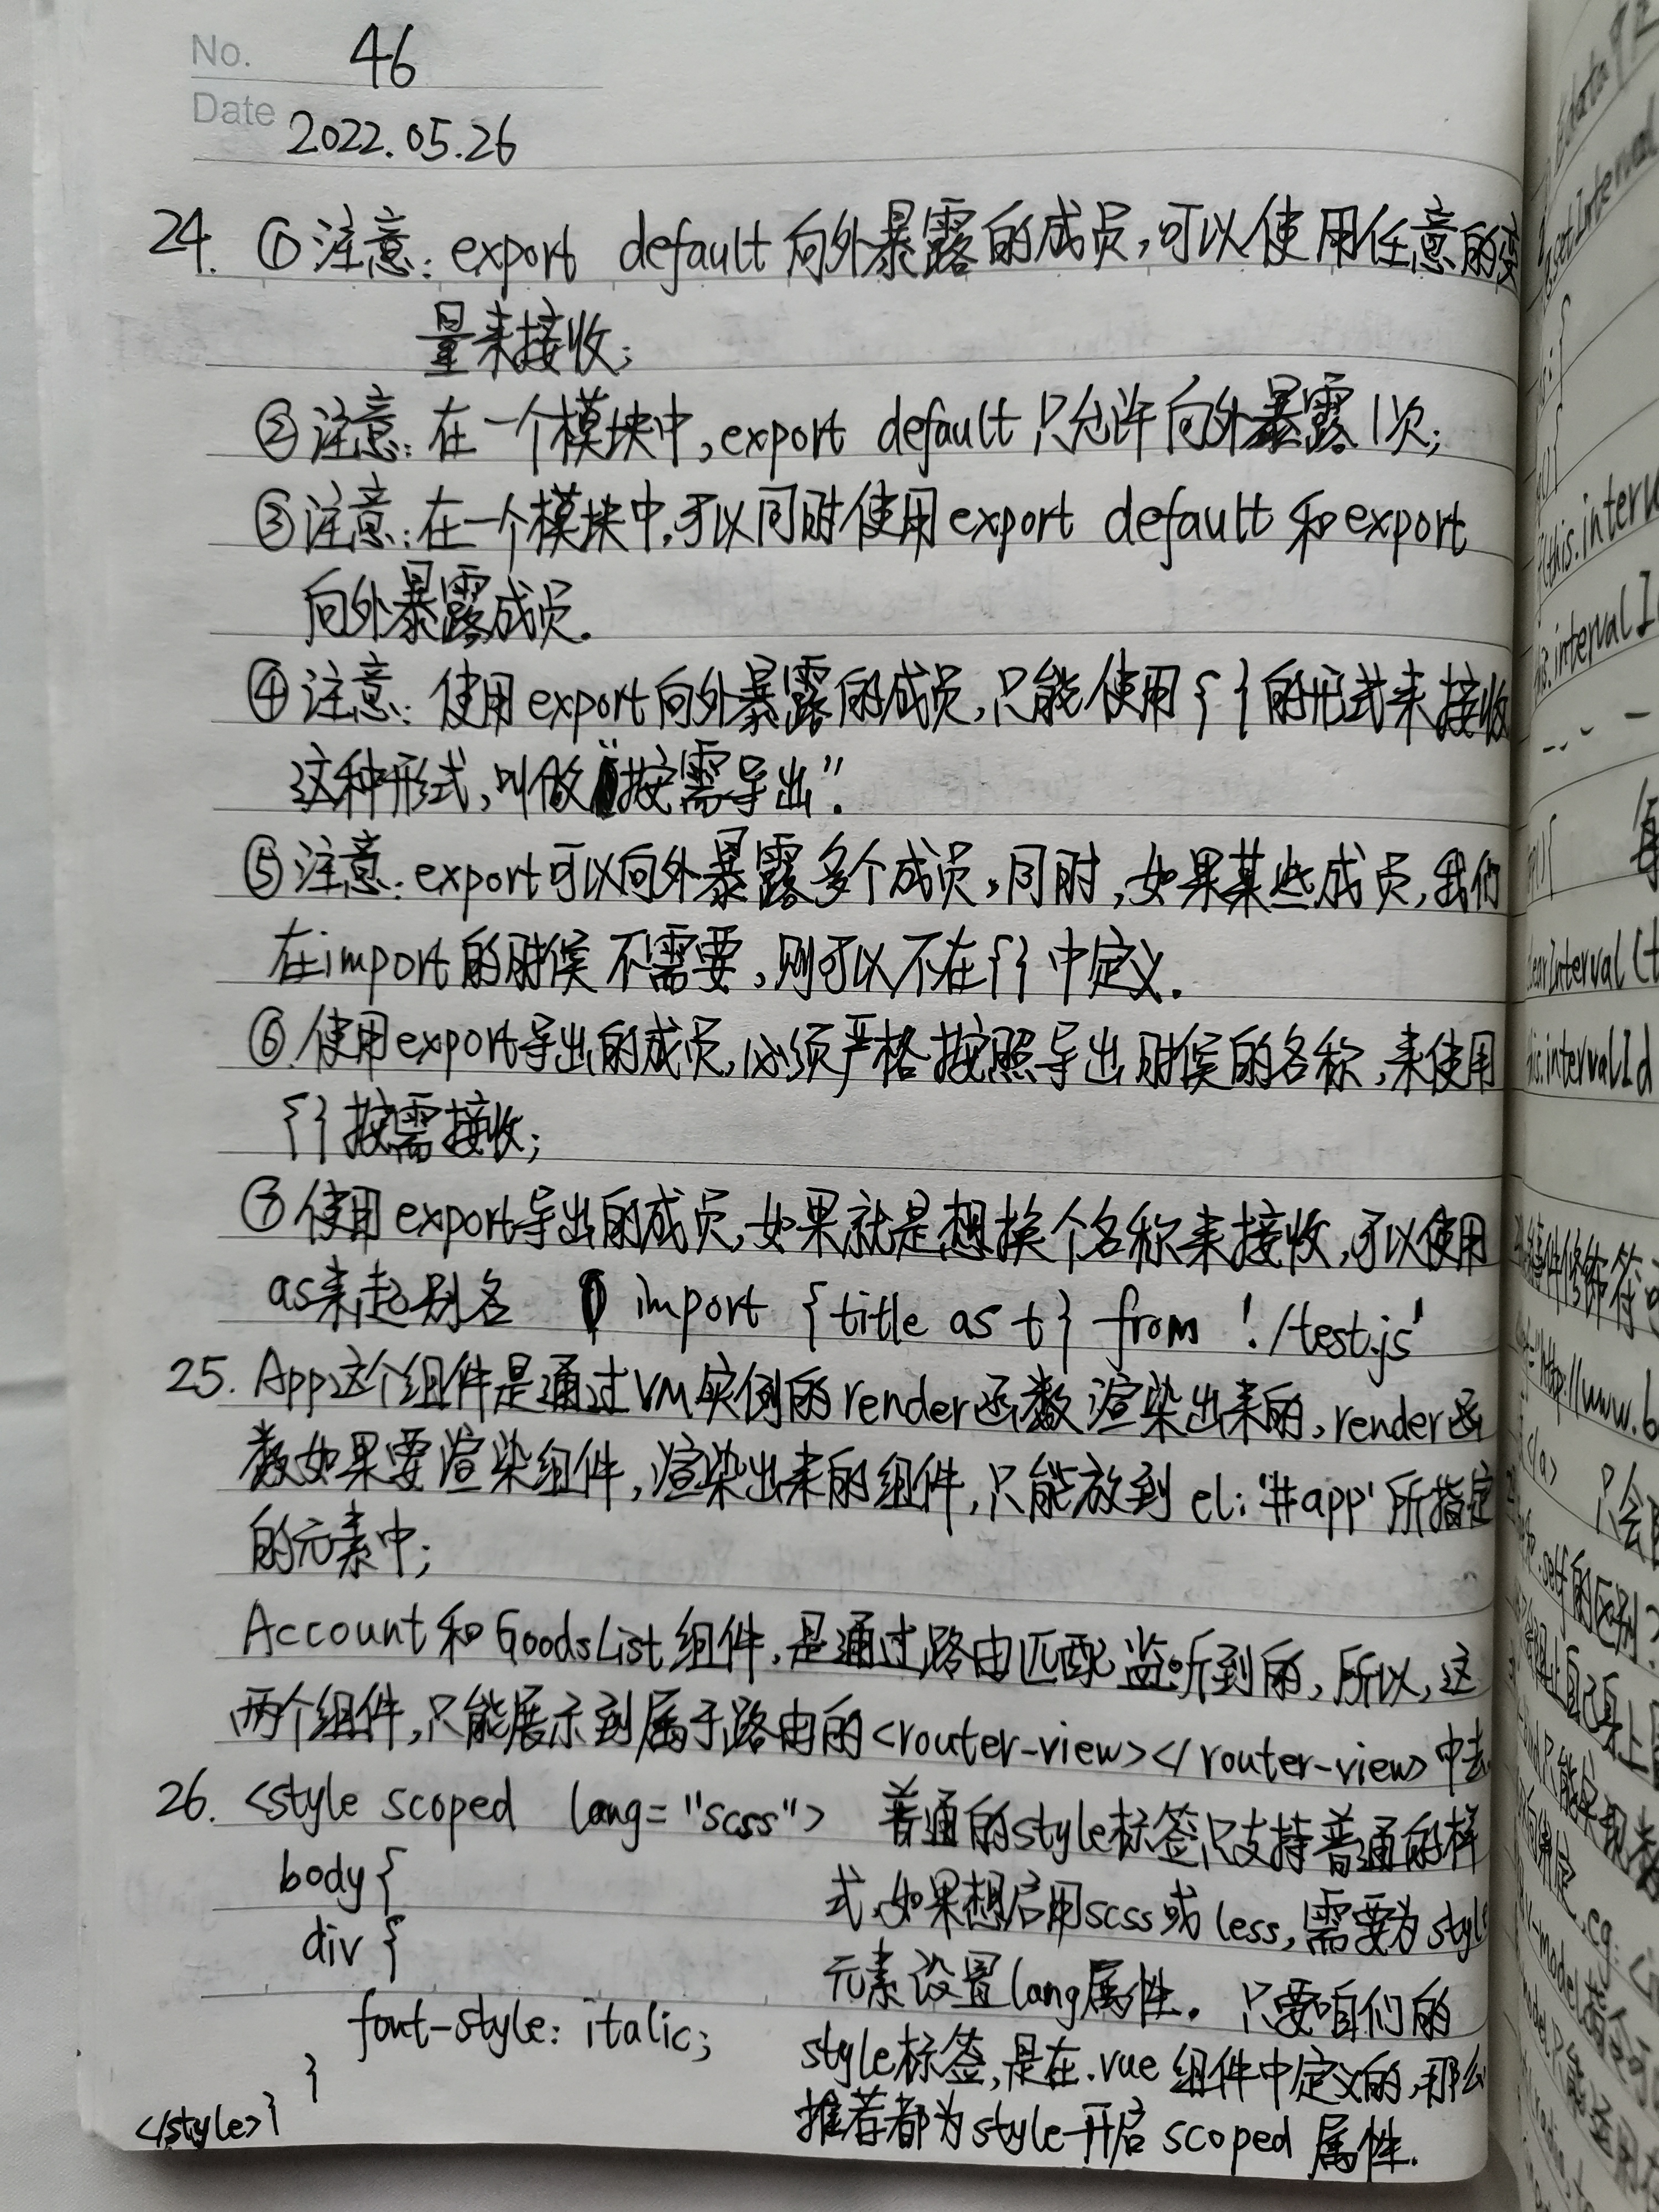 No. 46
Date 2022.05.26
24. ①注意: export default 向外暴露的成员,可以使用任意的变
量来接收;
②注意: 在一个模块中,export default 只允许向外暴露1次;
③注意:在一个模块中,可以同时使用export default 和export
向外暴露成员.
④注意: 使用export向外暴露的成员,只能使用{ }的形式来接收
这种形式,叫做"按需导出".
⑤注意:export可以向外暴露多个成员,同时,如果某些成员,我们
在import的时候不需要,则可以不在{}中定义.
⑥使用export导出的成员,必须严格按照导出时候的名称,来使用
{}按需接收;
⑦使用export导出的成员,如果就是想换个名称来接收,可以使用
as来起别名 import {title as t} from './test.js'
25. App这个组件是通过VM实例的render函数渲染出来的,render函
数如果要渲染组件,渲染出来的组件,只能放到 el:'#app' 所指定
的元素中;
Account和GoodsList组件,是通过路由匹配监听到的,所以,这
两个组件,只能展示到属于路由的<router-view></router-view>中去
26. <style scoped lang="scss"> 普通的style标签只支持普通的样
body{ 式,如果想启用scss或less,需要为style
div {
元素设置lang属性. 只要咱们的
font-style: italic; style标签,是在.vue组件中定义的,那么
}
</style>} 推荐都为style开启scoped属性.
data
setInterval
this.interv
is.intervalI
clearInterval(t
his.intervalId
件修饰符
</a> 只会
.self的区别